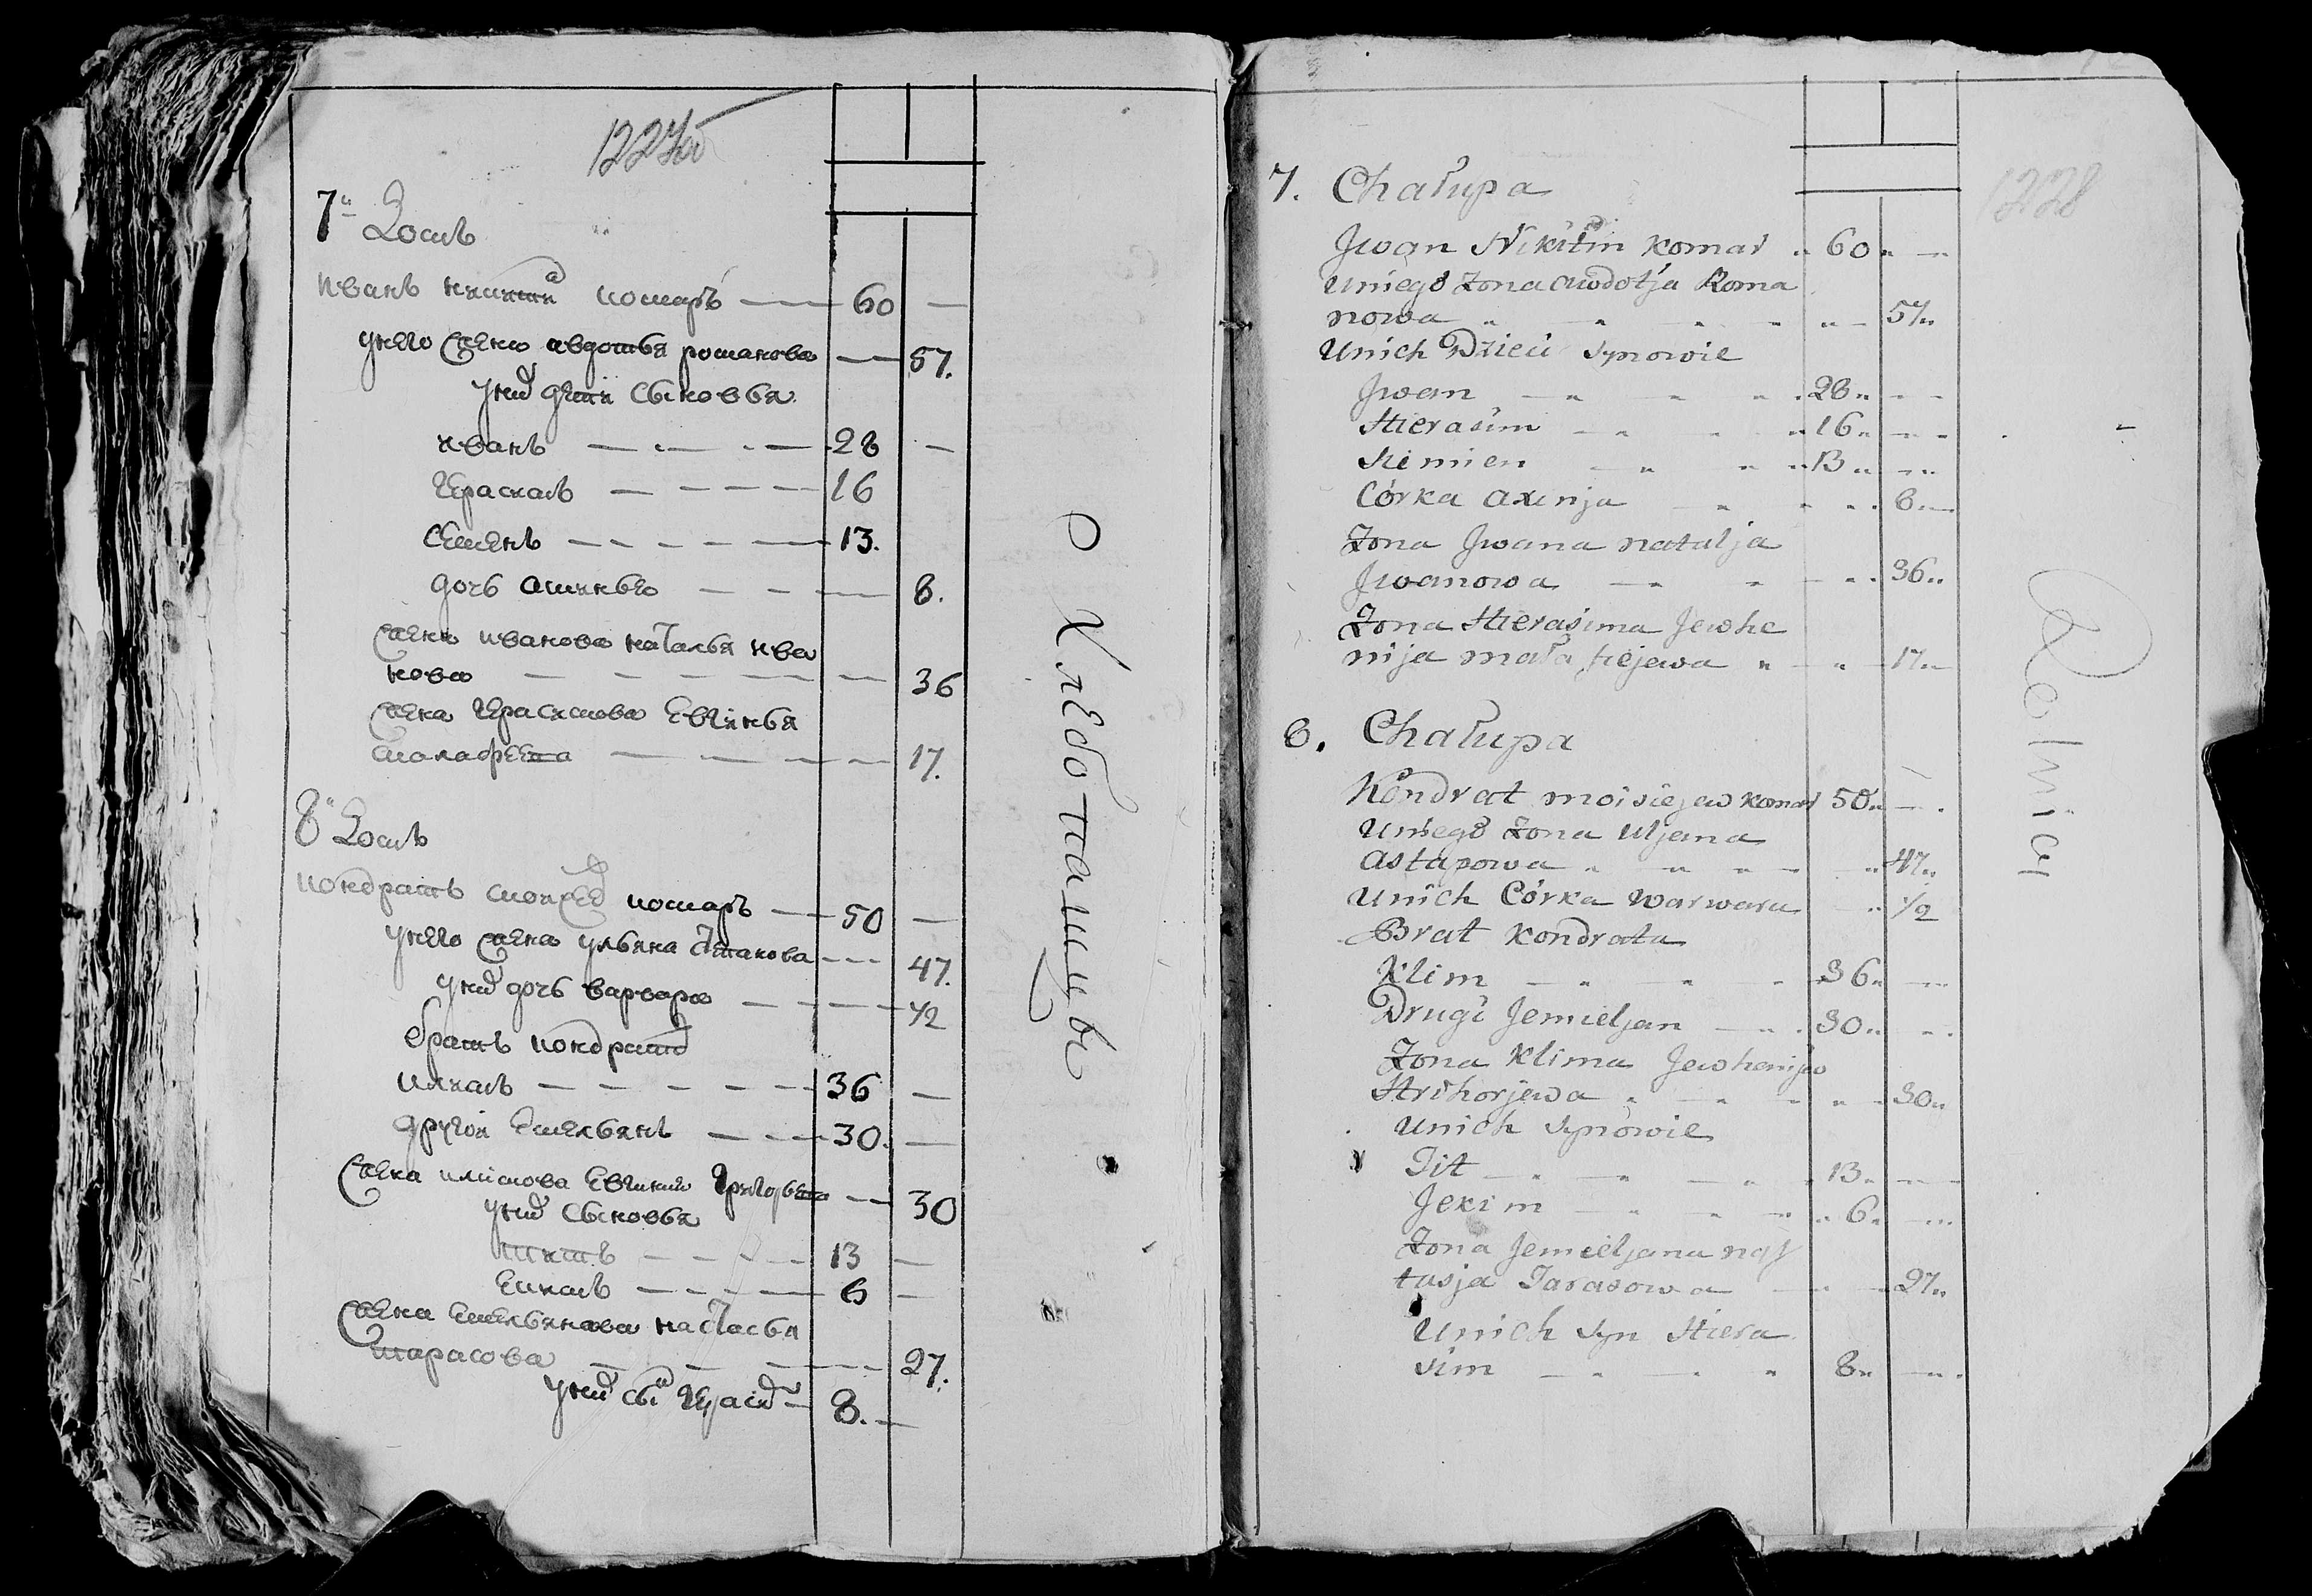 1227об
7й Домъ
иванъ никитинъ комаръ — 60 —
унего жена авдотья романова — 57.
уних дети сыновья
иванъ — 28 —
Герасимъ — 16
Семенъ — 13.
дочь аксинья — 8.
жена иванова наталья ива
нова — 36
жена Герасимова Евгинья
малафеева — 17.
8й Домъ
кондратъ моисеев комаръ — 50 —
унего жена ульяна астапова — 47.
уних дочь варвара — 1/2
братъ кондратов
климъ — 36 —
другой Емельянъ — 30. —
жена климова Евгиния Григорьева — 30
уних сыновья
титъ — 13 —
Екимъ — 6 —
жена Емельянова настасья
тарасова — 27.
уних сын Герасим — 8. —
Хлебопашцы
1228
7. Chałupa
Jwan Nikitin Komar 60 —
Uniego Żona Awdotja Roma
nowa 57
Unich Dzieci Synowie
Jwan 28
Hierasim 16
Siemien 13
Córka Axinja 8
Żona Jwana Natalja
Jwanowa 36
Żona Hierasima Jewhe
nija Małafiejewa 17
8. Chałupa
Kondrat Moisiejew Komar 50
Uniego Żona Uljana
Astapowa 47
Unich Córka Warwara 1/2
Brat Kondrata
Klim 36
Drugi Jemieljan 30
Żona Klima Jewhenija
Hrihorjewa 30
Unich Synowie
Tit 13
Jekim 6
Żona Jemieljana Nas
tasja Tarasowa 27
Unich Syn Hiera
sim 8
Rolnicy